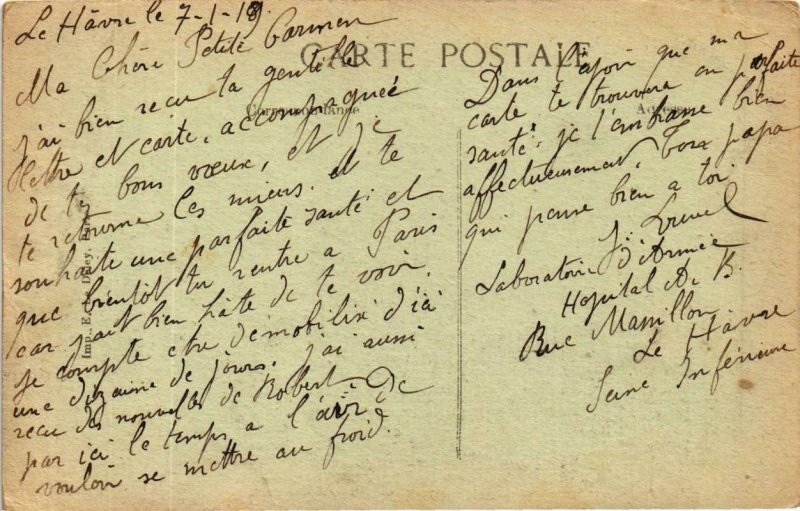 Le Hâvre le 7-1-19
Ma Chère Petite Carmen
CARTE POSTALE
Correspondance
Adresse
j'ai bien reçu ta gentille
lettre et carte, accompagnée
de tes bons vœux, et je
te retourne les miens. et te
souhaite une parfaite santé et
que bientôt tu rentre a Paris
car j'ai bien hâte de te voir.
Je compte etre démobilisé d'ici
une dizaine de jours, j'ai aussi
reçu des nouvelles de Robert.
par ici le temps a l'air de
vouloir se mettre au froid.
Dans l'espoir que ma
carte te trouvera en parfaite
santé, je t'embrasse bien
affectueusement, Ton papa
qui pense bien a toi.
J. Louvel
Laboratoire d'Armée
Hopital A B.
Rue Massillon
Le Hâvre
Seine Inférieure
Imp. E. Le Deley, Paris